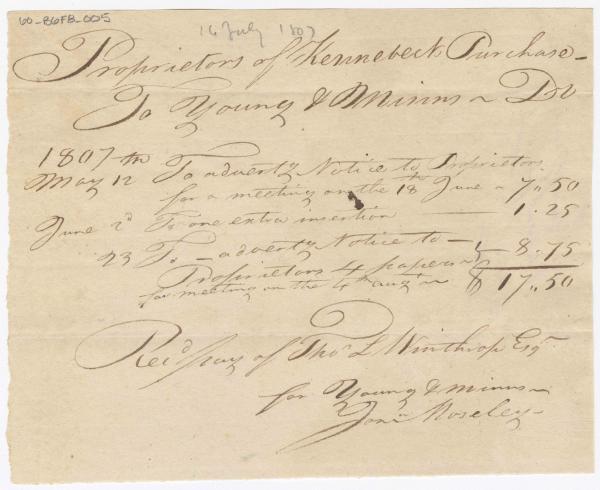 60-86FB-005
16 July 1807
Proprietors of Kennebeck Purchase
To Young & Minns Dr
1807
May 12 To advertg Notice to Proprietors
for a meeting on the 18th June 7,,50
June 2d To one extra insertion 1.25
23 To advertg Notice to
Proprietors 4 papers 8.75
for meeting on the 4th augt $17,,50
Recd pay of Thos L Winthrop Esqr
for Young & Minns
Jona Moseley